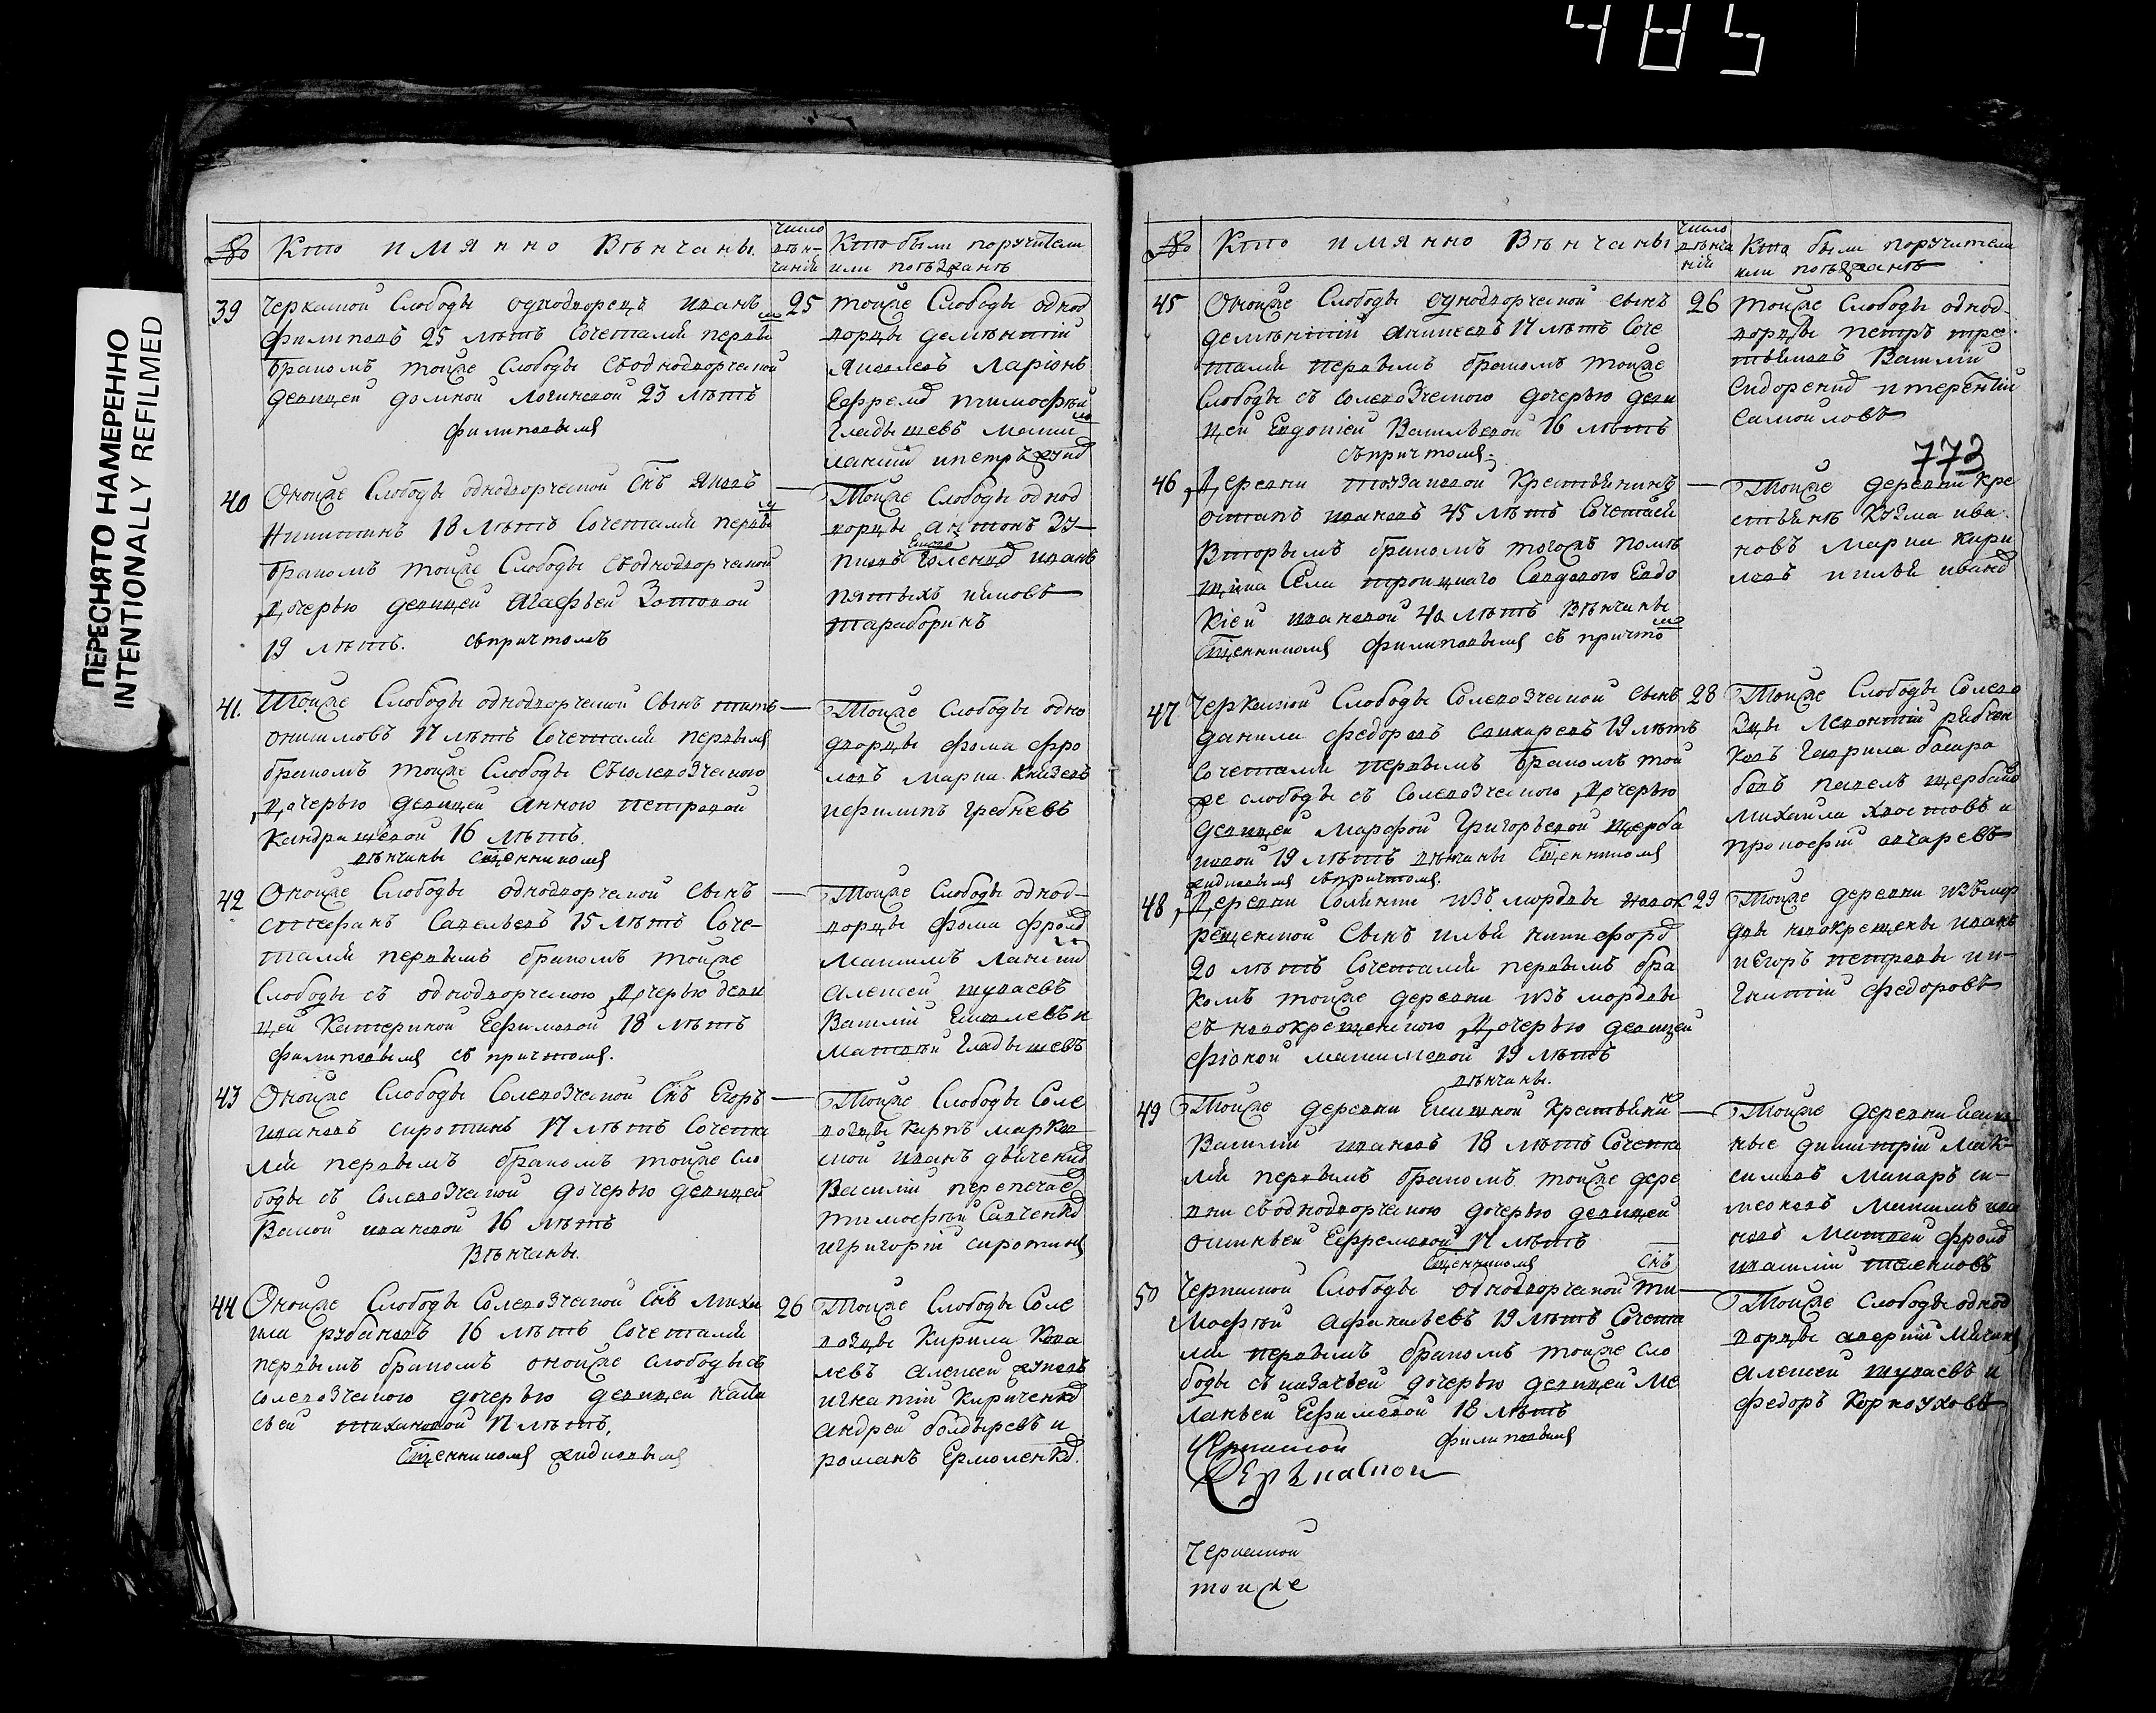 485
ПЕРЕСНЯТО НАМЕРЕННО
INTENTIONALLY REFILMED
№ Кто имянно Вѣнчаны. число вѣн-чаній Кто были поручители или поѣзжанѣ
39 Черкаской Слободы однодворецъ иванъ 25
филиповъ 25 лѣтъ Сочетался первым
бракомъ тойже Слободы Съоднодворческой
девицей домной логиновой 23 лѣтъ
филиповымъ
тойже Слободы однод
ворцы дементий
Яковлевъ Ларіонъ
Ефремо тимофѣй
гладышевъ
40 Онойже Слободы однодворческой Снъ яковъ —
Никитинъ 18 лѣтъ Сочетался первым
бракомъ тойже Слободы Съоднодворческой
Дочерью девицей Агафьей Зотовой
19 лѣтъ. съпричтомъ
Тойже Слободы однод
ворцы антонъ
иванъ
пятыхъ
тараборинъ
41. Тойже Слободы однодворческой Сынъ титъ —
онисимовъ 17 лѣтъ Сочетался первымъ
бракомъ тойже Слободы Съсолевозческого
Дочерью девицей анною петровой
Кандрашевой 16 лѣтъ.
вѣнчаны Сщенникомъ
Тойже Слободы одно
дворцы фома фро
ловъ марки Князевъ
ифилипъ Гребневъ
42 Онойже Слободы однодворческой Сынъ —
стефанъ Савельевъ 15 лѣтъ Соче-
тался первымъ бракомъ тойже
Слободы съ однодворческою Дочерью деви
цей Катериной Ефимовой 18 лѣтъ
филиповымъ съ причтомъ.
Тойже Слободы однод-
ворцы фома фролов
Максимъ
алексей шуваевъ
Василій Емелевъ и
Матвѣй Гладышевъ
43 Онойже Слободы Солевозческой Снъ Егоръ —
ивановъ сиротинъ 17 лѣтъ Сочета
лся первымъ бракомъ тойже Сло
боды съ Солевозческой дочерью девицей
Васой ивановой 16 лѣтъ
Вѣнчаны.
Тойже Слободы Соле
возцы Карпъ марков
ской иванъ
Василій
тимофѣй Савченко
игригорій сиротинъ
44 Онойже Слободы Солевозческой Снъ Миха
ила рубановъ 16 лѣтъ Сочетался 26
первымъ бракомъ онойже слободы съ
солевозческою дочерью девицей ната
сьей тихановой 17 лѣтъ,
Сщенникомъ
Тойже Слободы Соле
возцы Кирила Кова
левъ алексей жуковъ
игнатій Кириченко
андрей болдыревъ и
романъ Ермоленко.
№ Кто имянно Вѣнчаны число вѣнча ній Кто были поручители или поѣзжанѣ
45 Онойже Слободы однодворческой сынъ 26
дементий аникеевъ 17 лѣтъ Соче
тался первымъ бракомъ тойже
Слободы съ солевозческою дочерью деви
цей Евдокіей Васильевой 16 лѣтъ
съпричтомъ.
тойже Слободы однод-
ворцы петръ тре
тьяковъ Василій
Сидоренко итерентій
Самойловъ
773
46 Деревни Крестьянинъ —
остапъ ивановъ 45 лѣтъ Сочетался
Вторымъ бракомъ тогожъ помѣ
щика Села троицкаго Евдо
кіей ивановой 40 лѣтъ Вѣнчаны
Сщенникомъ филиповымъ съ причто
Тойже деревни Кре
стьянѣ Кузма ива
новъ Марки Кири
ловъ иилья
47 Черкаской Слободы Солевозческой Сынъ 28
данила федоровъ 19 лѣтъ
Сочетался первымъ бракомъ той
же слободы съ Солевозческою Дочерью
девицей Марфой Григорьевой щерба
ковой 19 лѣтъ вѣнчаны Сщенникомъ
съпричтомъ.
Тойже Слободы Солево
зцы Леонтій рябчен
ковъ Гаврила
павелъ щербаков
михаила хвостовъ и
прокофій овчаревъ
48 Деревни из мордвы новок 29
рещенской Сынъ илья никифоров
20 лѣтъ Сочетался первымъ бра
комъ тойже деревни изъ мордвы
съ новокрещенскою Дочерью девицей
фіокой максимовой 19 лѣтъ
вѣнчаны.
Тойже деревни изъмор
двы новокрещены иванъ
иегоръ петровы и
игнатій федоровъ
49 Тойже деревни Крестьянинъ —
Василій ивановъ 18 лѣтъ Сочета
лся первымъ бракомъ тойже дере
вни съоднодворческою дочерью девицей
Ефремовой 17 лѣтъ
Сщенникомъ
Тойже деревни
димитрій Мак-
симовъ Макаръ си-
меоновъ Максимъ ива
новъ Матвей фролов
50 Черкаской Слободы однодворческой Снъ Ти —
мофѣй афанасьевъ 19 лѣтъ Сочета
лся первымъ бракомъ тойже сло
боды съказачьей дочерью девицей Ме
ланьей Ефимовой 18 лѣтъ
филиповымъ
Тойже Слободы однод
ворцы аверкій
алексей шуваевъ и
федоръ Корноуховъ
Черкаской
Черкаской
Черкаской
тойже